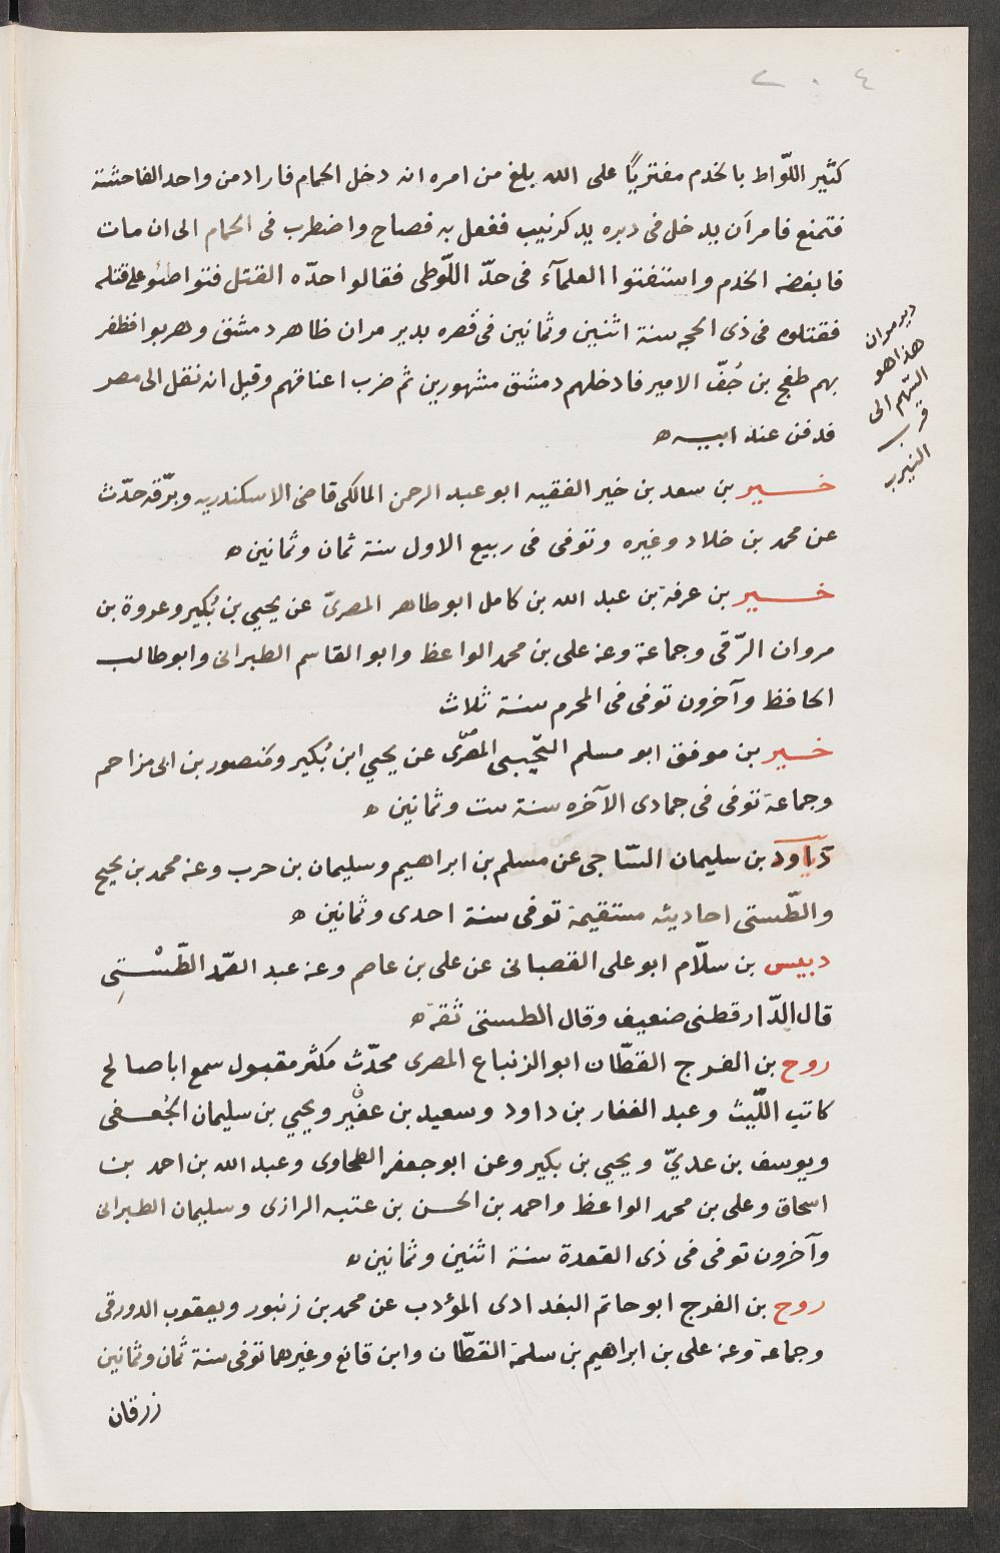 ٢٠٤
كثير اللّواط بالخدم مفتريًا على الله بلغ من امره انه دخل الحمام فاراد من واحد الفاحشة
فتمنع فامر أن يدخل في دبره يد كرنيب ففعل به فصاح واضطرب في الحمام الى ان مات
فابغضه الخدم واستفتوا العلمآء في حدّ اللّوطي فقالوا حدّه القتل فتواطئو على قتله
فقتلوه في ذى الحجه سنة اثنين وثمانين في قصره بدير مران ظاهر دمشق وهربوا فظفر
بهم طغج بن جُفّ الامير فادخلهم دمشق مشهورين ثم ضرب اعناقهم وقيل انه نقل الى مصر
فدفن عند ابيه ه
دير مران
هذا هو
السهم الى
قرب
النيرب
خير بن سعد بن خير الفقيه ابو عبد الرحمن المالكي قاضى الاسكندريه وبرّقه حدّث
عن محمد بن خلاد وغيره وتوفى فى ربيع الاول سنة ثمان وثمانين ه
خير بن عرفة بن عبد الله بن كامل ابو طاهر المصرىّ عن يحيي بن بُكير وعروة بن
مروان الرّقى وجماعة وعنه على بن محمد الواعظ وابو القاسم الطبرانى وابو طالب
الحافظ وآخرون توفى فى المحرم سنة ثلاث
خير بن موفق ابو مسلم التجّيبى المصرّى عن يحيي ابن بُكير ومَنصور بن ابى مزاحم
وجماعة توفى فى جمادى الآخره سنة ست وثمانين ه
داود بن سليمان السّاجى عن مسلم بن ابراهيم وسليمان بن حرب وعنه محمد بن نجيح
والطّستى احاديثه مستقيمة توفى سنة احدى وثمانين ه
دبيس بن سلّام ابو على القصبانى عن على بن عاصم وعنه عبد الصّمد الطّسْتِى
قال الدّارقطنى ضعيف وقال الطستى ثقة ه
روح بن الفرج القطّان ابو الزنباع المصرى محدّث مكثر مقبول سمع ابا صالح
كاتب اللّيث وعبد الغفار بن داود وسعيد بن عفَير ويحيي بن سليمان الجُعفى
ويوسف بن عديّ ويحيي بن بكير وعن ابو جعفر الطحاوى وعبد الله بن احمد بن
اسحاق وعلى بن محمد الواعظ واحمد بن الحسن بن عتبه الرازى وسليمان الطبرانى
وآخرون توفى فى ذى القعدة سنة اثنين وثمانين ه
روح بن الفرج ابو حاتم البغدادى المؤدب عن محمد بن زنبور ويعقوب الدورقى
وجماعة وعنه على بن ابراهيم بن سلمة القطّان وابن قانع وغيرهما توفى سنة ثمان وثمانين
زرقان